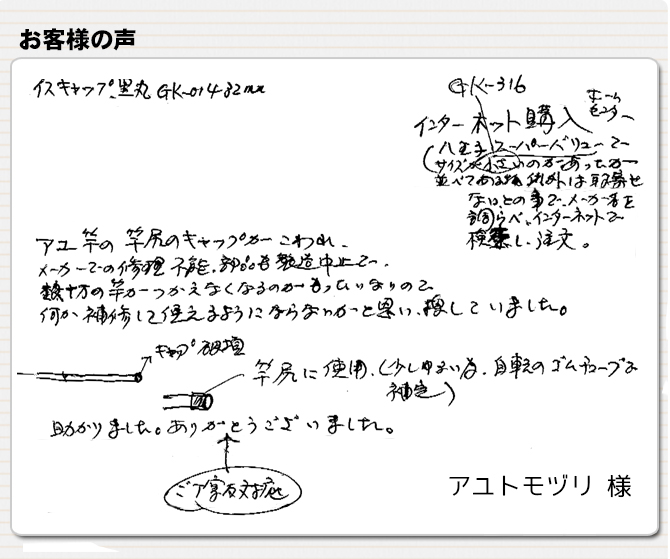 お客様の声
イスキャップ 黒丸 GK-014 32mm
GK-316
ホームセンター
インターネット購入
(八王子スーパーバリューで
サイズが小さいのがあったが
並べてある物以外は取寄せ
ないとの事で、メーカー名を
調らべ、インターネットで
検索し、注文。
アユ竿の竿尻のキャップがこわれ、
メーカーでの修理不能。部品も製造中止で、
数十万の竿がつかえなくなるのがもったいないので
何か補修して使えるようにならないかと思い、探していました。
キャップ破壊
竿尻に使用。(少しゆるい為、自転のゴムチューブで
補定)
助かりました。ありがとうございました。
アユトモヅリ 様